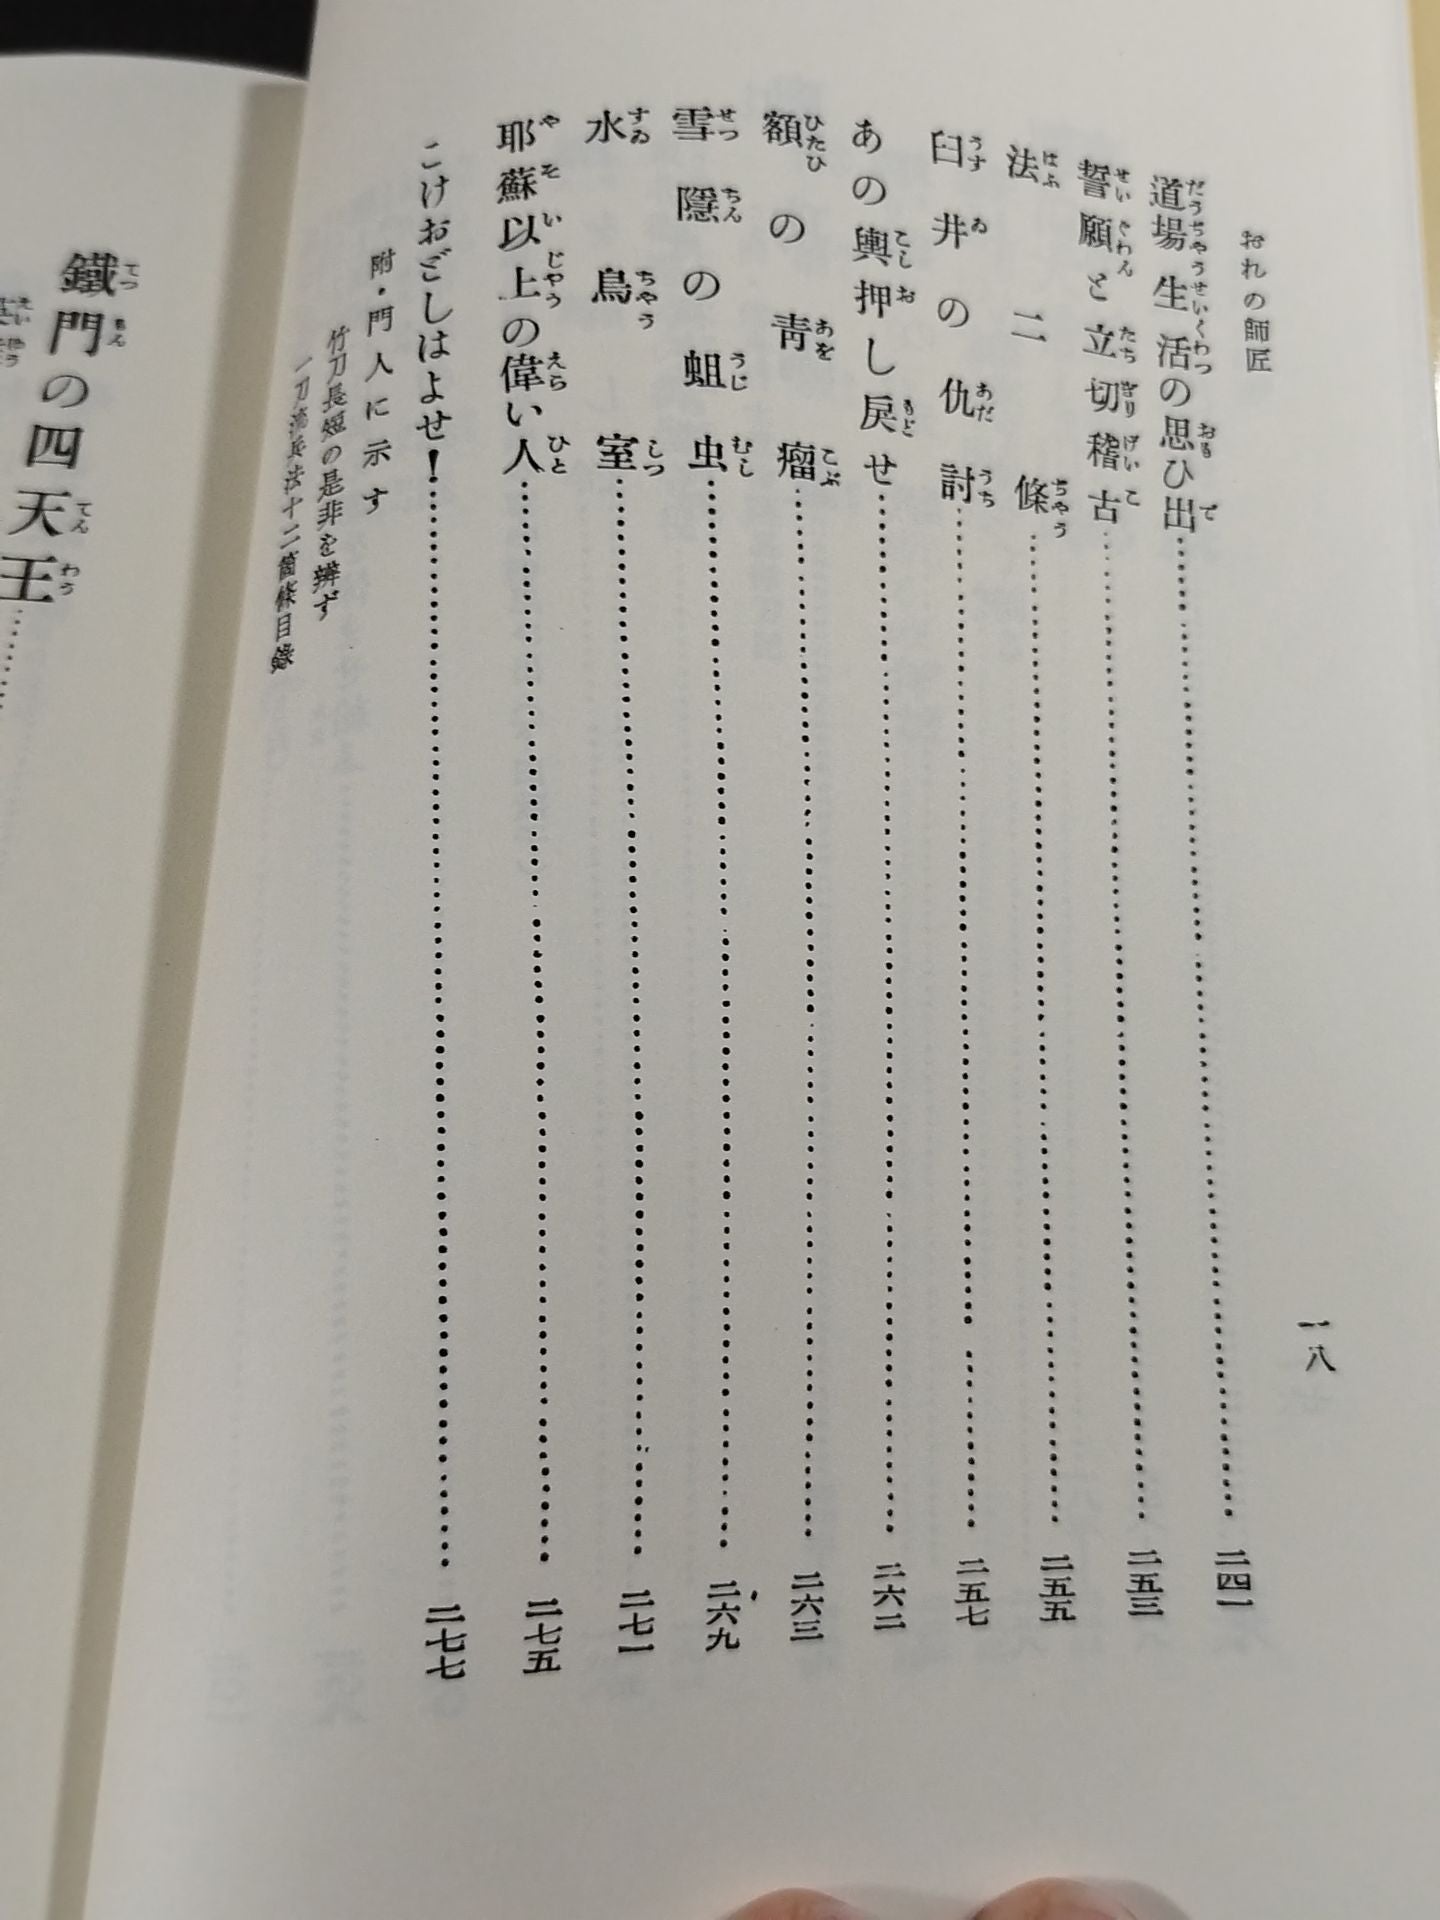 おれの師匠
一八
道場生活の思ひ出……二四一
誓願と立切稽古……二五三
法二條……二五五
臼井の仇討……二五七
あの輿押し戻せ……二六二
額の靑瘤……二六三
雪隱の蛆虫……二六九
水鳥室……二七一
耶蘇以上の偉い人……二七五
こけおどしはよせ!……二七七
附・門人に示す
竹刀長短の是非を辨ず
一刀流兵法十二箇條目錄
鐵門の四天王……